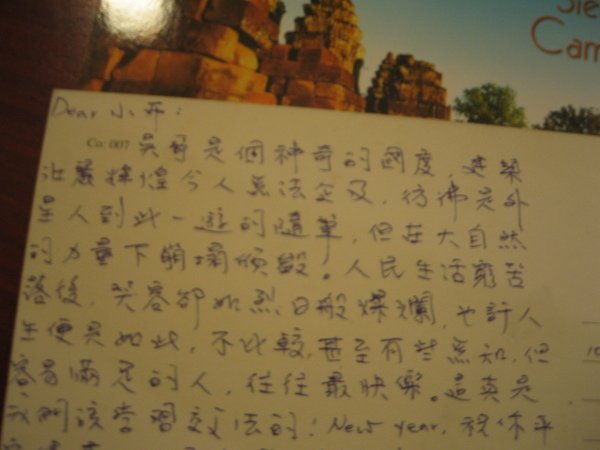 Sie
Cam
Dear 小
Co: 007 吳哥是個神奇的國度，建築
輝煌令人無法企及，彷彿是外
星人到此一遊的隨筆，但在大自然
的力量下崩壞傾毀。人民生活窮苦
落後，笑容卻如烈日般燦爛，也許人
生便是如此，不比較，甚至有些無知，但
容易滿足的人，往往最快樂。這真是
我們該學習效法的！New year, 祝你平
10